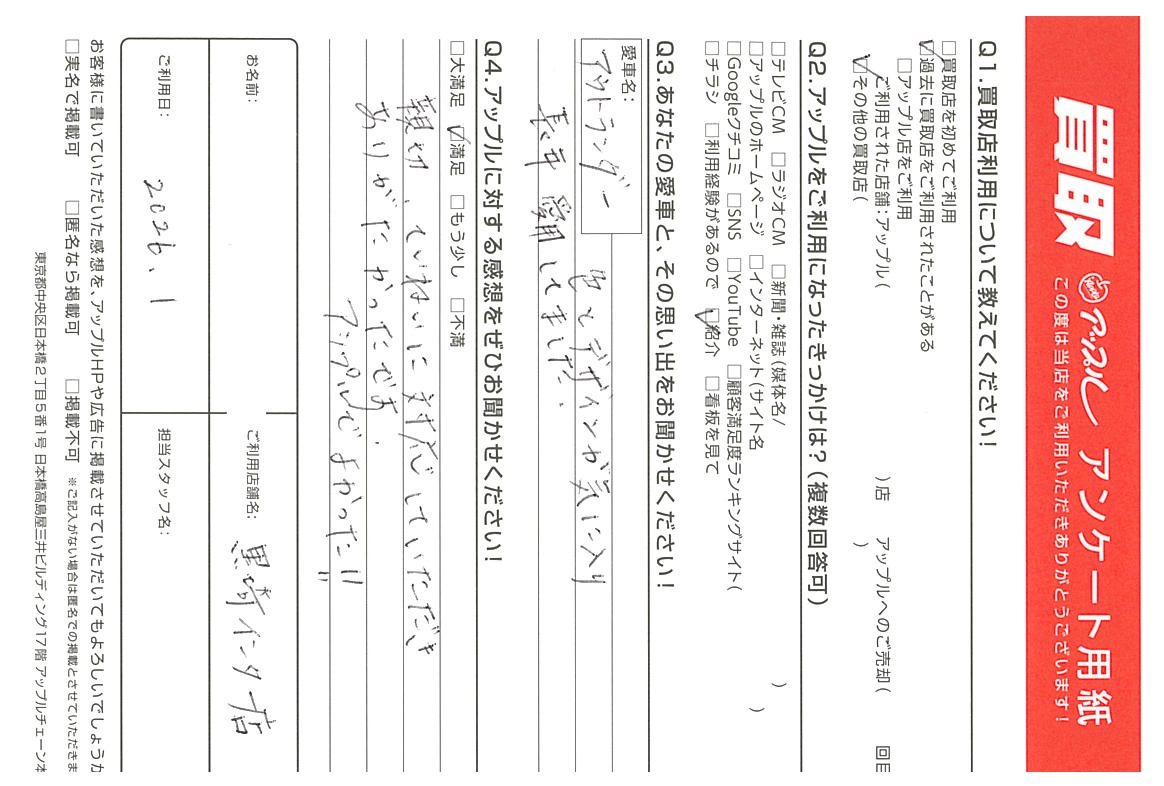 買取 アップル アンケート用紙
この度は当店をご利用いただきありがとうございます!
Q1.買取店利用について教えてください!
□買取店を初めてご利用
☑過去に買取店をご利用されたことがある
□アップル店をご利用
ご利用された店舗:アップル( )店 アップルへのご売却( 回目
☑その他の買取店( )
Q2.アップルをご利用になったきっかけは?(複数回答可)
□テレビCM □ラジオCM □新聞・雑誌(媒体名/ )
□アップルのホームページ □インターネット(サイト名 )
□Googleクチコミ □SNS □YouTube □顧客満足度ランキングサイト(
□チラシ □利用経験があるので ☑紹介 □看板を見て
Q3.あなたの愛車と、その思い出をお聞かせください!
愛車名:
アウトランダー
色とデザインが気に入り
長年 愛用してました.
Q4.アップルに対する感想をぜひお聞かせください!
□大満足 ☑満足 □もう少し □不満
親切、ていねいに対応していただき
ありがたかったです.
アップルでよかった!!
お名前:
ご利用店舗名: 黒崎インター店
ご利用日: 2026、1
担当スタッフ名:
お客様に書いていただいた感想を、アップルHPや広告に掲載させていただいてもよろしいでしょうか
□実名で掲載可 □匿名なら掲載可 □掲載不可 ※ご記入がない場合は匿名での掲載とさせていただきま
東京都中央区日本橋2丁目5番1号 日本橋髙島屋三井ビルディング17階 アップルチェーン本